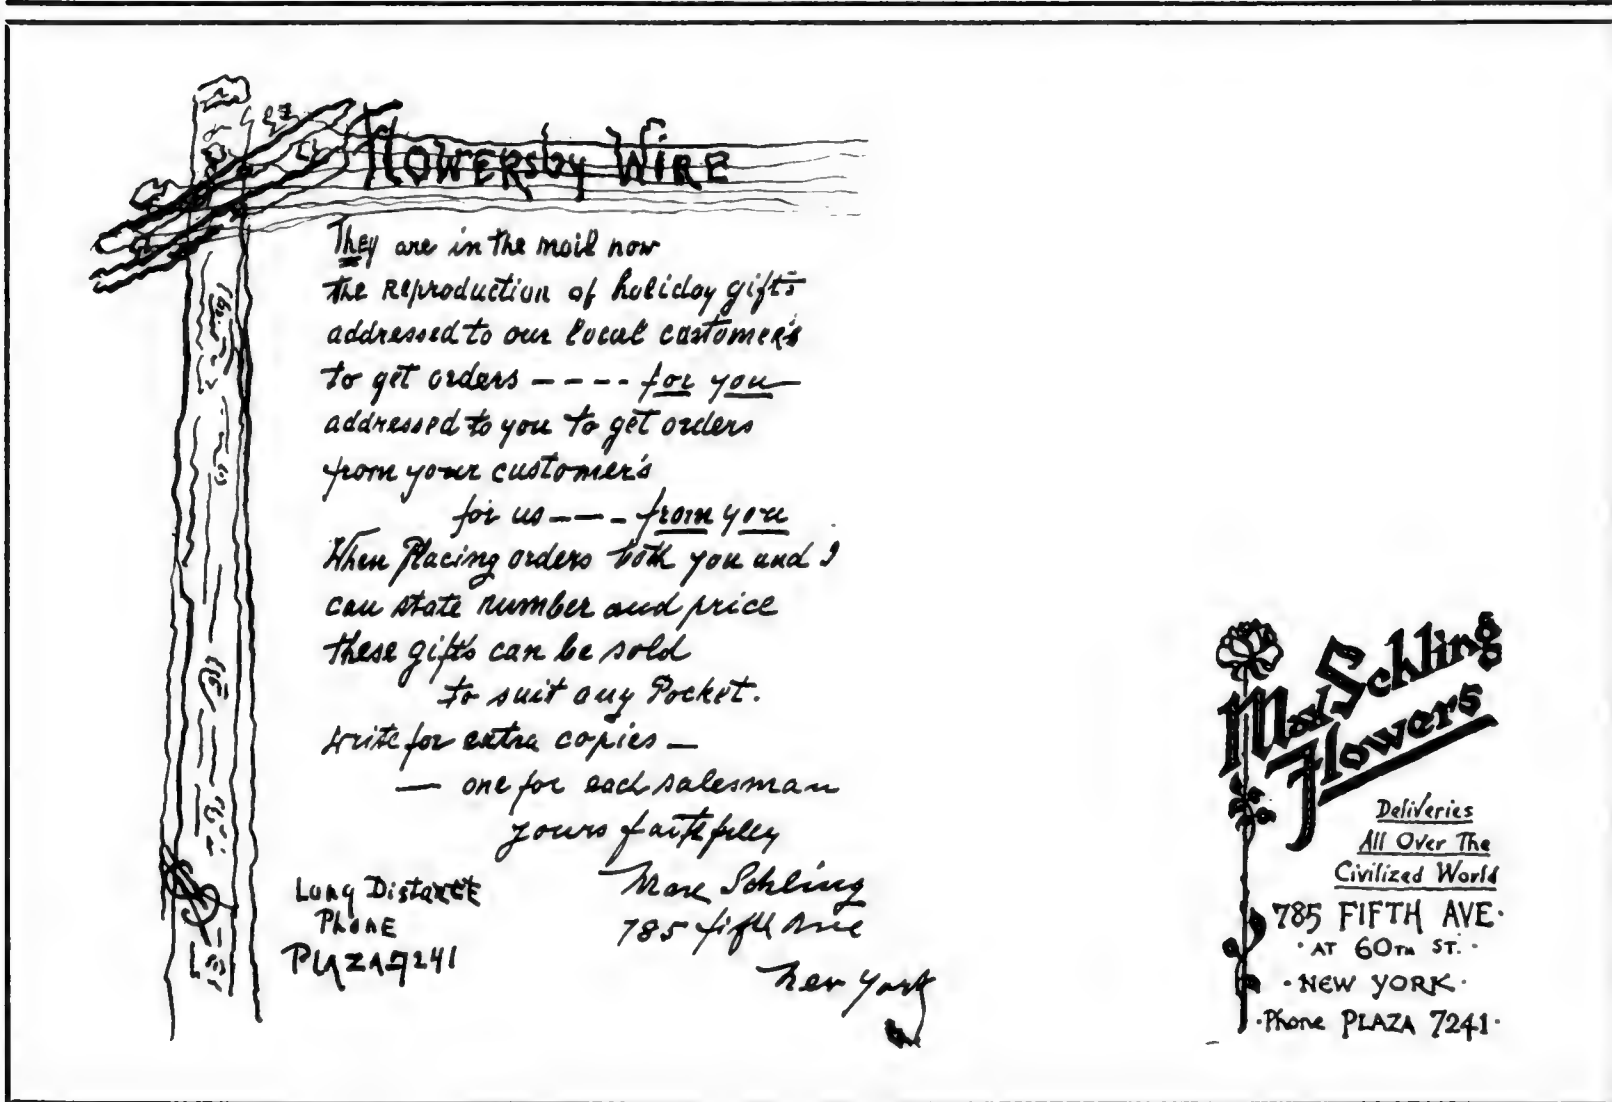 Flowers by Wire
They are in the mail now
the Reproduction of holiday gifts
addressed to our local customer's
to get orders ---- for you
addressed to you to get orders
from your customer's
for us --- from you
When Placing orders both you and I
can state number and price
these gifts can be sold
to suit any Pocket.
write for extra copies —
— one for each salesman
yours faithfully
Max Schling
785 fifth Ave
New York
Long Distance
Phone
PLAZA 7241
Max Schling
Flowers
Deliveries
All Over The
Civilized World
785 FIFTH AVE·
· AT 60TH ST. ·
· NEW YORK ·
· Phone PLAZA 7241 ·